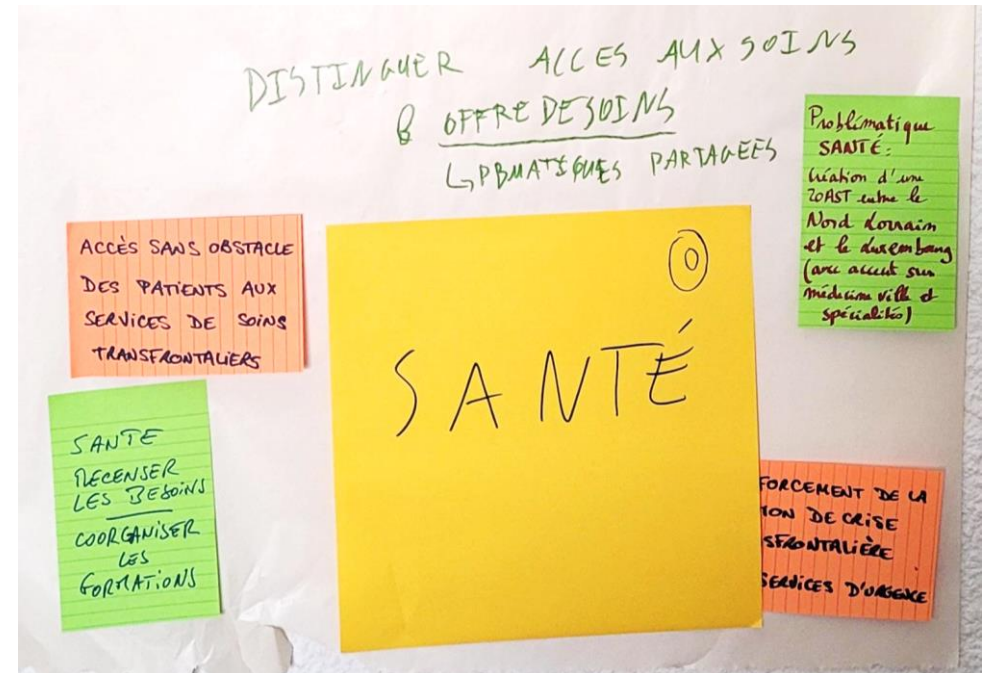 DISTINGUER ACCES AUX SOINS
& OFFRE DE SOINS
↳ PBMATIQUES PARTAGEES
Problématique
SANTÉ:
Création d'une
ZOAST entre le
Nord Lorrain
et le Luxembourg
(avec accent sur
médecine ville et
spécialités)
ACCÈS SANS OBSTACLE
DES PATIENTS AUX
SERVICES DE SOINS
TRANSFRONTALIERS
SANTÉ
SANTE
RECENSER
LES BESOINS
COORGANISER
LES
FORMATIONS
FORCEMENT DE LA
ION DE CRISE
SFRONTALIÈRE
SERVICES D'URGENCE